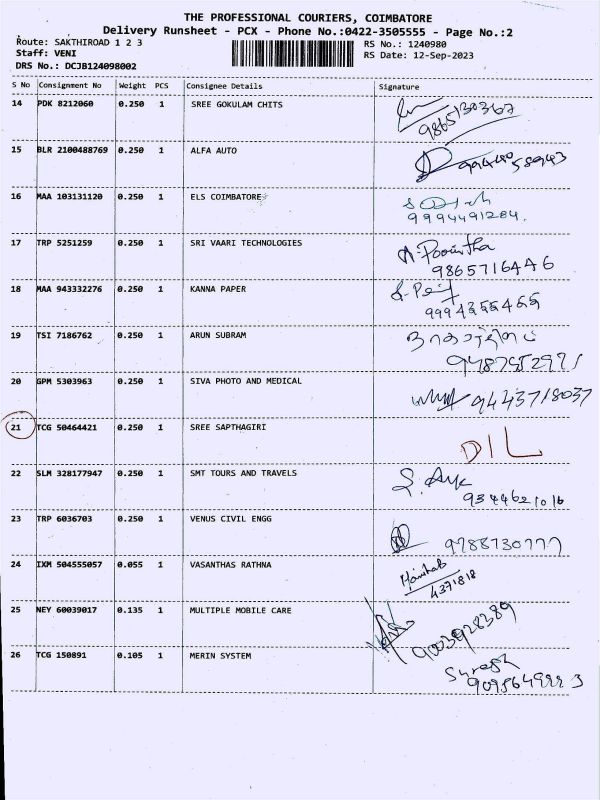 THE PROFESSIONAL COURIERS, COIMBATORE
Delivery Runsheet - PCX - Phone No.:0422-3505555 - Page No.:2
Route: SAKTHIROAD 1 2 3 RS No.: 1240980
Staff: VENI RS Date: 12-Sep-2023
DRS No.: DCJB124098002
S No Consignment No Weight PCS Consignee Details Signature
14 PDK 8212060 0.250 1 SREE GOKULAM CHITS
9865130367
15 BLR 2100488769 0.250 1 ALFA AUTO
16 MAA 103131120 0.250 1 ELS COIMBATORE
9994491284.
17 TRP 5251259 0.250 1 SRI VAARI TECHNOLOGIES
9865716446
18 MAA 943332276 0.250 1 KANNA PAPER
19 TSI 7186762 0.250 1 ARUN SUBRAM
20 GPM 5303963 0.250 1 SIVA PHOTO AND MEDICAL
9443718037
21 TCG 50464421 0.250 1 SREE SAPTHAGIRI
DIL
22 SLM 328177947 0.250 1 SMT TOURS AND TRAVELS
9344621016
23 TRP 6036703 0.250 1 VENUS CIVIL ENGG
9788730777
24 IXM 504555057 0.055 1 VASANTHAS RATHNA
4371818
25 NEY 60039017 0.135 1 MULTIPLE MOBILE CARE
9003928389
26 TCG 150891 0.105 1 MERIN SYSTEM
Suresh